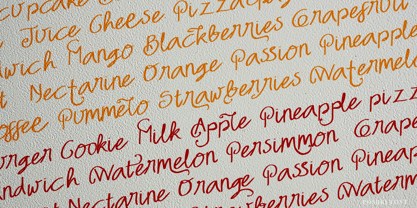 Cupcake
Juice Cheese Pizza
dwich Mango Blackberries Grapefruit
Nectarine Orange Passion Pineapple
offee Pummelo Strawberries Watermelo
urger Cookie Milk Apple Pineapple pizz
ndwich Watermelon Persimmon Grape
Nectarine Orange Passion Pineap
berries Waterm